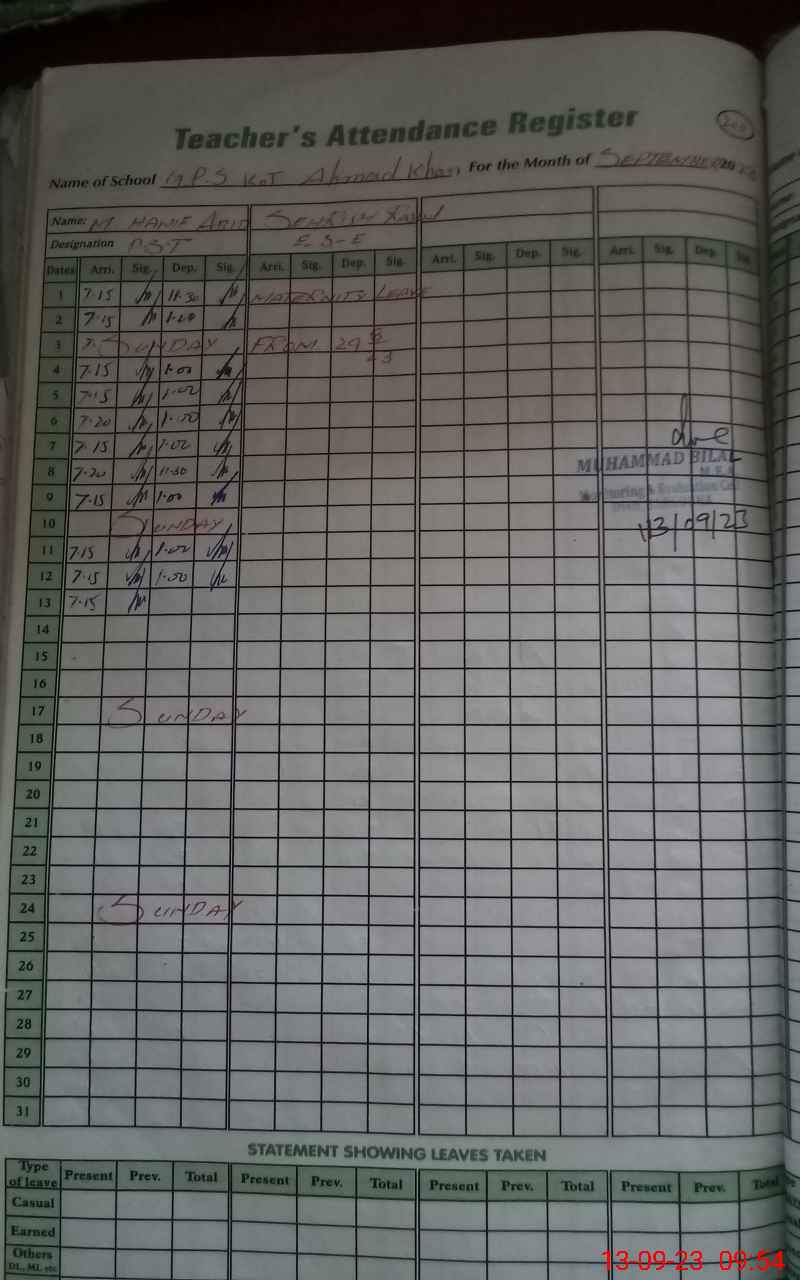 Teacher's Attendance Register
Name of School G.P.S KOT Ahmad Khan For the Month of SEPTEMBER 20
Name: M HANIF
Designation P.S.T E-S-E
Dates Arri. Sig. Dep. Sig. Arri. Sig. Dep. Sig. Arri. Sig. Dep. Sig. Arri. Sig. Dep. Sig.
1 7-15 11-30 MATERNITY LEAVE
2 7-15 1-00
3 SUNDAY FROM 29
4 7-15 1-00
5 7-15 1-00
6 7-20 1-00
7 7-15 1-00
8 7-20 11-30
MUHAMMAD BILAL
M.E.A
9 7-15 1-00
Monitoring & Evaluation Cell
10 SUNDAY
13/09/23
11 7-15 1-00
12 7-15 1-00
13 7-15
14
15
16
17 SUNDAY
18
19
20
21
22
23
24 SUNDAY
25
26
27
28
29
30
31
STATEMENT SHOWING LEAVES TAKEN
Type of leave Present Prev. Total Present Prev. Total Present Prev. Total Present Prev. Total
Casual
Earned
Others
DL., ML. etc
13-09-23 09:54